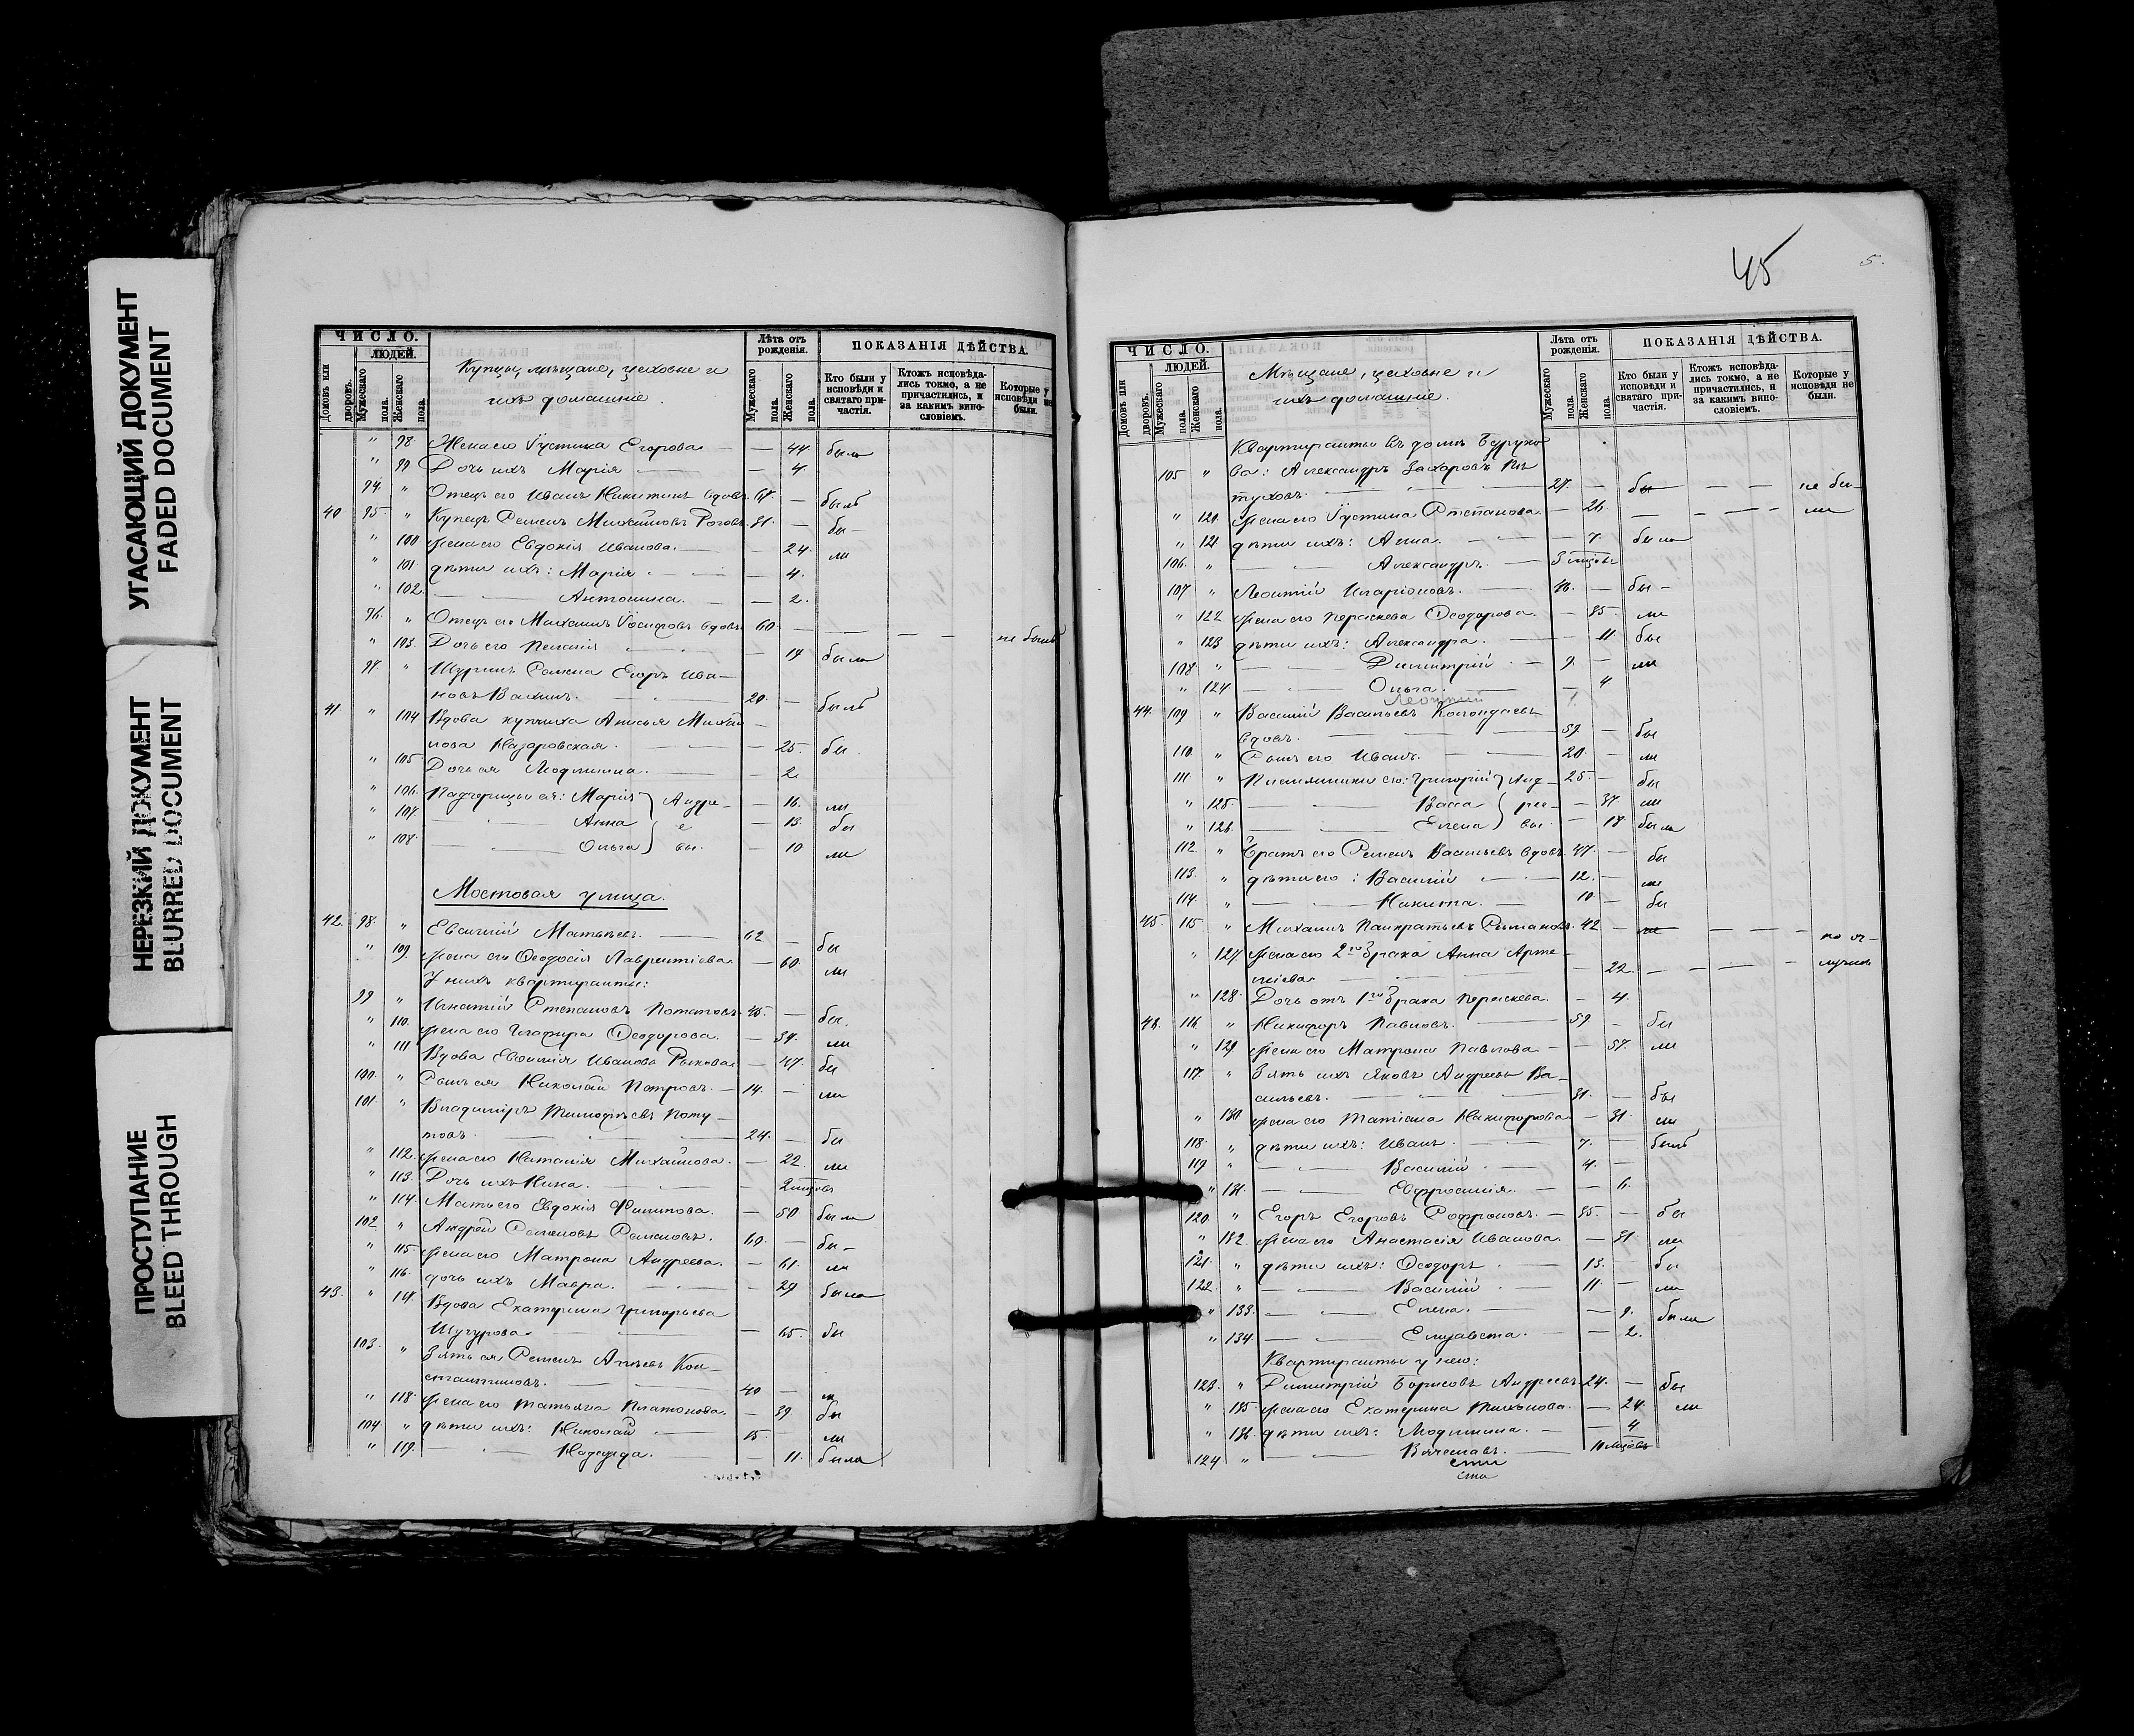 УГАСАЮЩИЙ ДОКУМЕНТ
FADED DOCUMENT
НЕРЕЗКИЙ ДОКУМЕНТ
BLURRED DOCUMENT
ПРОСТУПАНИЕ
BLEED THROUGH
ЧИСЛО.
ЛЮДЕЙ.
Домовъ или дворовъ.
Мужескаго пола.
Женскаго пола.
Купцы, мѣщане, цеховые и
ихъ домашніе.
Лѣта отъ рожденія.
Мужескаго пола.
Женскаго пола.
ПОКАЗАНІЯ ДѢЙСТВА.
Кто были у исповѣди и святаго причастія.
Ктожъ исповѣдались токмо, а не причастились, и за какимъ винословіемъ.
Которые у исповѣди не были.
" 98. Жена его Іустина Егорова — 44. была
" 99 Дочь ихъ Марія — 4.
94. " Отецъ его Иванъ Никитинъ вдовъ. — былъ
40 95. " Купецъ Семенъ Михайловъ Роговъ. 31. — бы-
" 100 Жена его Евдокія Иванова. — 24. ли
" 101. дѣти ихъ: Марія — 4.
" 102. Антонина. — 2.
96. " Отецъ его Михаилъ Іосифовъ вдовъ. 60. — — — не былъ
" 103. Дочь его — 19 была
97. " Шуринъ Семена Егоръ Ива-
новъ 20. — былъ
41 " 104 Вдова купчиха Анисья Михай-
лова Назаровская. — 25. бы
" 105 Дочь ея Людмила. — 2.
" 106. Падчерицы ея: Марія Андре- — 16. ли
" 107. Анна е — 13. бы
" 108. Ольга вы. — 10 ли
Мостовая улица.
42. 98. " Евсигній Матвѣевъ. 62 — бы
" 109. Жена его Ѳеодосія Лаврентіева — 60. ли
У нихъ квартиранты:
99 " Игнатій Степановъ Потаповъ. 45. — бы.
" 110. Жена его Глафира Ѳеодорова. — 34. ли
" 111 Вдова Евфимія Иванова Рыкова — 47. бы
100. " Сынъ ея Николай Петровъ. 14. — ли
101. " Владиміръ Тимофѣевъ Поту-
ловъ. 24. — бы
" 112. Жена его Наталія Михайлова. — 22. ли
" 113. Дочь ихъ Нина. 2 мцовъ
" 114. Мать его Евдокія Филипова. — 50 была
102 " Андрей Семеновъ Семеновъ. 60. — бы-
" 115. Жена его Матрона Андреева. — 61. ли
" 116. дочь ихъ Мавра. — 29 была
43. " 117. Вдова Екатерина Григорьева
— 65. бы
103. " Зять ея Семенъ Кон-
стантиновъ. 40 — ли
" 118. Жена его Татьяна Платонова. — 39 бы
104 " дѣти ихъ: Николай 15. ли
" 119. Надежда. — 11. была
45
5.
ЧИСЛО.
ЛЮДЕЙ.
Домовъ или дворовъ.
Мужескаго пола.
Женскаго пола.
Мѣщане, цеховые и
ихъ домашніе.
Лѣта отъ рожденія.
Мужескаго пола.
Женскаго пола.
ПОКАЗАНІЯ ДѢЙСТВА.
Кто были у исповѣди и святаго причастія.
Ктожъ исповѣдались токмо, а не причастились, и за какимъ винословіемъ.
Которые у исповѣди не были.
Квартиранты въ домѣ
105 " ва: Александръ Захаровъ Пѣ
туховъ. 27. — бы — — не бы-
" 120. Жена его Іустина Степанова. — 26. — — — ли
" 121 дѣти ихъ: Анна. — 7. была
106. " Александръ. 3 мцовъ
107 " Леонтій Иларіоновъ. — бы-
" 122 Жена его Параскева Ѳеодорова. — 35. ли
" 123 дѣти ихъ: Александра. — 11. бы
108 " Димитрій 9. — ли
" 124. Ольга. — 4
Леонтій
44. 109 " Василій Васильевъ
вдовъ. 59. — бы
110. " Сынъ его Иванъ. 20. — ли
111. " Племянники его: Григорій Анд- 25. — бы
" 125. Васса рее- — 37. ли
" 126. Елена вы. — 18. была
112. " Братъ его Семенъ Васильевъ вдовъ. 47. — бы
113. " дѣти его: Василій 12. — ли
114. " Никита. 10. — бы
45. 115 " Михаилъ Панкратьевъ 42 — — — по от-
" 127 Жена его 2го брака Анна Арте-
міева — 22. — — — лучкѣ
" 128. Дочь отъ 1го брака Параскева. — 4.
46. 116. " Никифоръ Павловъ. 59 — бы
" 129 Жена его Матрона Павлова — 57. ли
117. " Зять ихъ Яковъ Андреевъ Ва-
сильевъ. 31. — бы
" 130. Жена его Татіана Никифорова — 31. ли
118. " дѣти ихъ: Иванъ. 7. — былъ
119 " Василій 4. —
" 131. Евфросинія. — 6.
120. " Егоръ Егоровъ Софроновъ. 35. — бы
" 132. Жена его Анастасія Иванова. — 31. ли
121. " дѣти ихъ: Ѳеодоръ 13. — бы
122. " Василій 11. — ли
" 133. Елена. — 9. была
" 134 Елизавета. — 2.
Квартиранты у него:
123. " Димитрій Борисовъ Андреевъ. 24. — бы
" 135 Жена его Екатерина — 24. ли
" 136 дѣти ихъ: Людмила. — 4
124 " Вячеславъ. 10 мцовъ